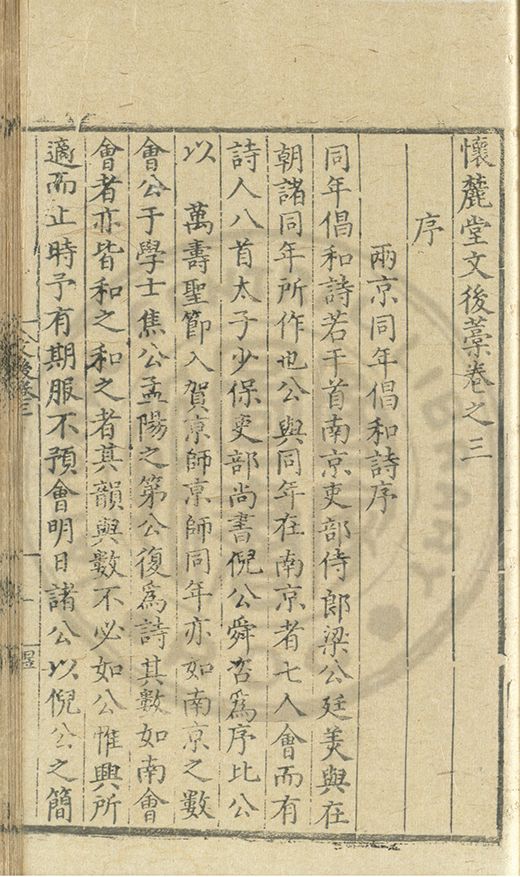 懷麓堂文後藁卷之三
序
兩京同年倡和詩序
同年倡和詩若干首南京吏部侍郎梁公廷美與在
朝諸同年所作也公與同年在南京者七人會而有
詩人八首太子少保吏部尚書倪公舜咨爲序比公
以　萬壽聖節入賀京師京師同年亦如南京之數
會公于學士焦公孟陽之第公復爲詩其數如南會
會者亦皆和之和之者其韻與數不必如公惟興所
適而止時予有期服不預會明日諸公以倪公之簡